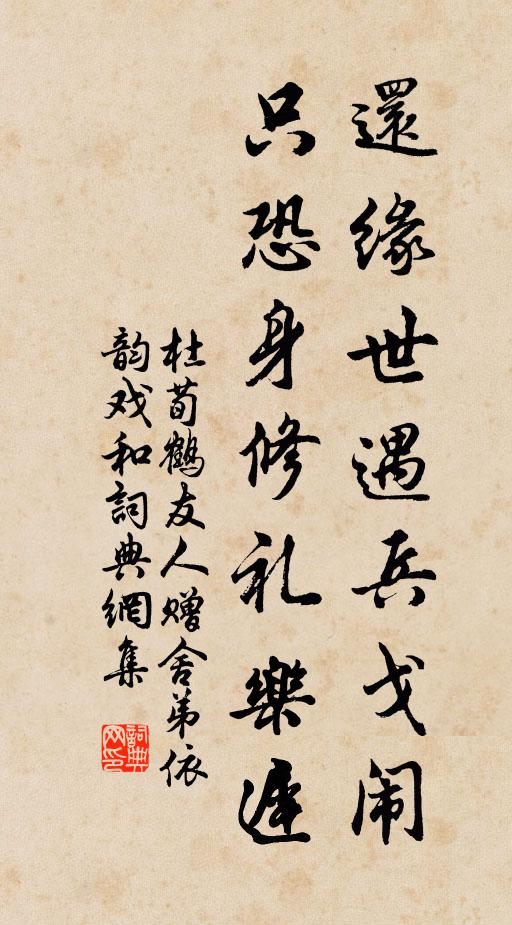 還緣世遇兵戈闹
只恐身修礼樂遲
杜荀鶴友人贈舍弟依
韵戏和詞典網集
詞典网印